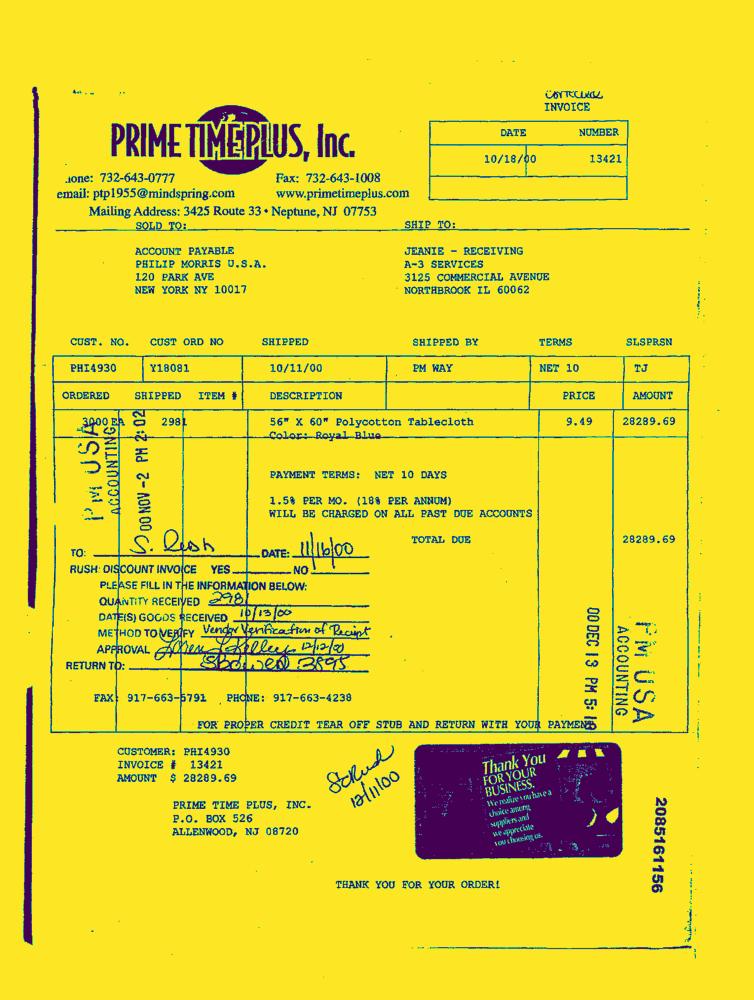 Corrected
INVOICE
PRIME TIME PLUS, Inc.
DATE NUMBER
10/18/00 13421
one: 732-643-0777 Fax: 732-643-1008
email: ptp1955@mindspring.com www.primetimeplus.com
Mailing Address: 3425 Route 33 • Neptune, NJ 07753
SOLD TO: SHIP TO:
ACCOUNT PAYABLE JEANIE - RECEIVING
PHILIP MORRIS U.S.A. A-3 SERVICES
120 PARK AVE 3125 COMMERCIAL AVENUE
NEW YORK NY 10017 NORTHBROOK IL 60062
CUST. NO. CUST ORD NO SHIPPED SHIPPED BY TERMS SLSPRSN
PHI4930 Y18081 10/11/00 PM WAY NET 10 TJ
ORDERED SHIPPED ITEM # DESCRIPTION PRICE AMOUNT
3000 EA 2981 56" X 60" Polycotton Tablecloth 9.49 28289.69
Color: Royal Blue
PM USA
ACCOUNTING
00 NOV -2 PM 2:02
PAYMENT TERMS: NET 10 DAYS
1.5% PER MO. (18% PER ANNUM)
WILL BE CHARGED ON ALL PAST DUE ACCOUNTS
TOTAL DUE 28289.69
TO: S. DATE: 11/16/00
RUSH: DISCOUNT INVOICE YES NO
PLEASE FILL IN THE INFORMATION BELOW:
QUANTITY RECEIVED 2981
DATE(S) GOODS RECEIVED 10/13/00
METHOD TO VERIFY Vendor Verification of Receipt
APPROVAL 12/12/00
RETURN TO: 3895
00 DEC 13 PM 5:
PM USA
ACCOUNTING
FAX 917-663-5791 PHONE: 917-663-4238
FOR PROPER CREDIT TEAR OFF STUB AND RETURN WITH YOUR PAYMENT
CUSTOMER: PHI4930
INVOICE # 13421
AMOUNT $ 28289.69
12/11/00
Thank You
FOR YOUR
BUSINESS.
We realize you have a
choice among
suppliers and
we appreciate
you choosing us.
PRIME TIME PLUS, INC.
P.O. BOX 526
ALLENWOOD, NJ 08720
2085161156
THANK YOU FOR YOUR ORDER!